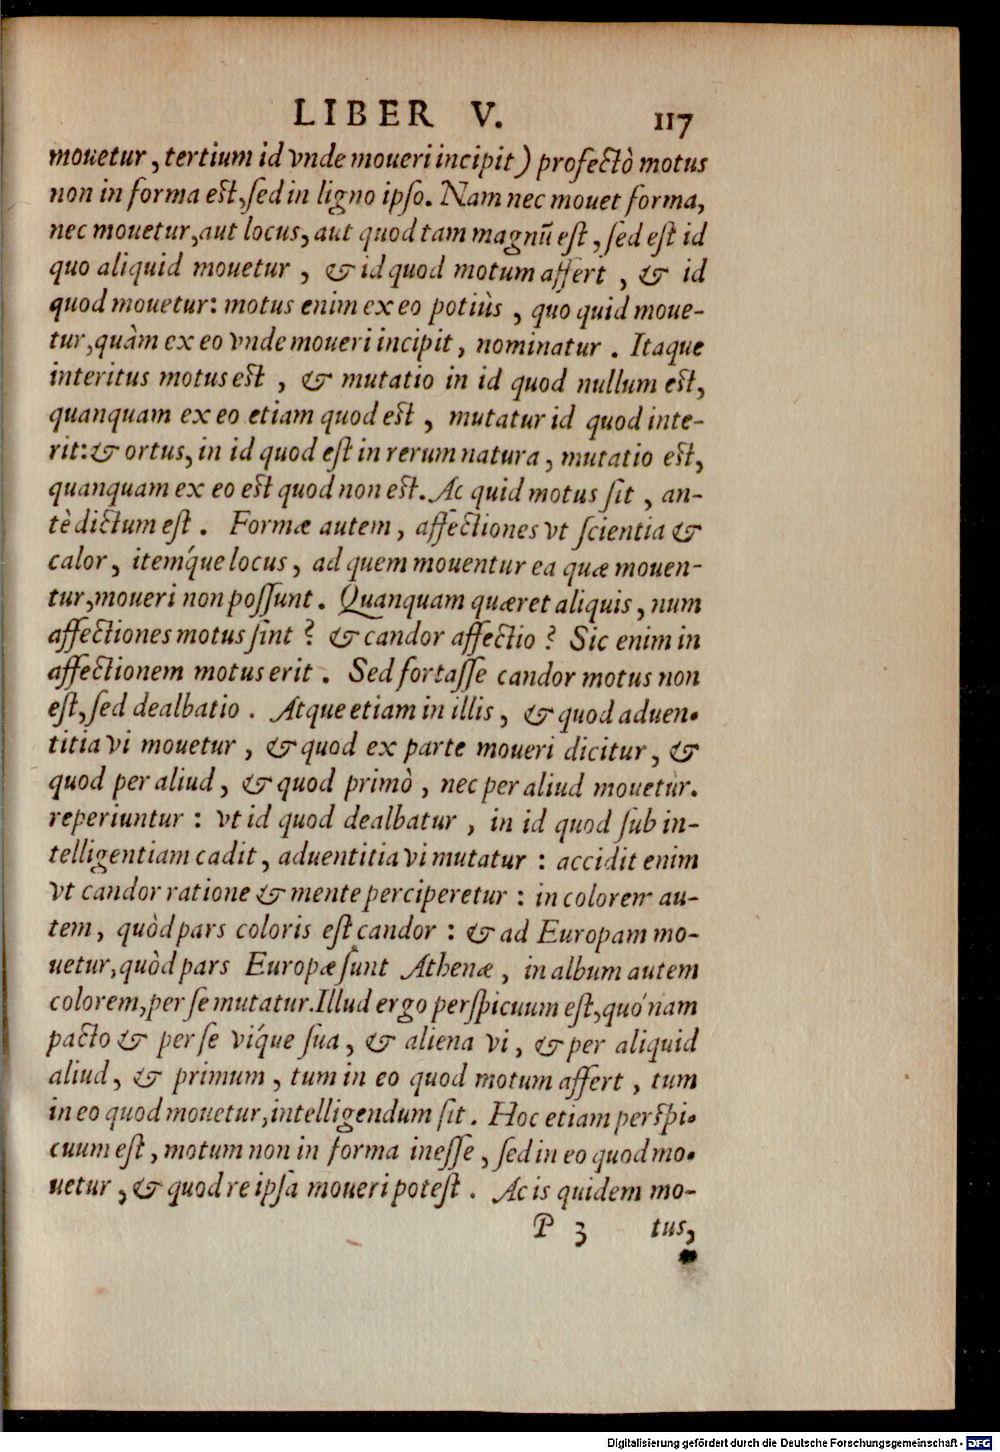 LIBER V. 117
mouetur, tertium id vnde moueri incipit) profectò motus
non in forma est, sed in ligno ipso. Nam nec mouet forma,
nec mouetur, aut locus, aut quod tam magnũ est, sed est id
quo aliquid mouetur, & id quod motum affert, & id
quod mouetur: motus enim ex eo potiùs, quo quid moue-
tur, quàm ex eo vnde moueri incipit, nominatur. Itaque
interitus motus est, & mutatio in id quod nullum est,
quanquam ex eo etiam quod est, mutatur id quod inte-
rit: & ortus, in id quod est in rerum natura, mutatio est,
quanquam ex eo est quod non est. Ac quid motus sit, an-
tè dictum est. Formæ autem, affectiones vt scientia &
calor, itemq́ue locus, ad quem mouentur ea quæ mouen-
tur, moueri non possunt. Quanquam quæret aliquis, num
affectiones motus sint? & candor affectio? Sic enim in
affectionem motus erit. Sed fortasse candor motus non
est, sed dealbatio. Atque etiam in illis, & quod aduen-
titia vi mouetur, & quod ex parte moueri dicitur, &
quod per aliud, & quod primò, nec per aliud mouetur.
reperiuntur: vt id quod dealbatur, in id quod sub in-
telligentiam cadit, aduentitia vi mutatur: accidit enim
vt candor ratione & mente perciperetur: in colorem au-
tem, quòd pars coloris est candor: & ad Europam mo-
uetur, quòd pars Europæ sunt Athenæ, in album autem
colorem, per se mutatur. Illud ergo perspicuum est, quónam
pacto & per se viq́ue sua, & aliena vi, & per aliquid
aliud, & primum, tum in eo quod motum affert, tum
in eo quod mouetur, intelligendum sit. Hoc etiam perspi-
cuum est, motum non in forma inesse, sed in eo quod mo-
uetur, & quod re ipsa moueri potest. Ac is quidem mo-
P 3 tus,
Digitalisierung gefördert durch die Deutsche Forschungsgemeinschaft - DFG